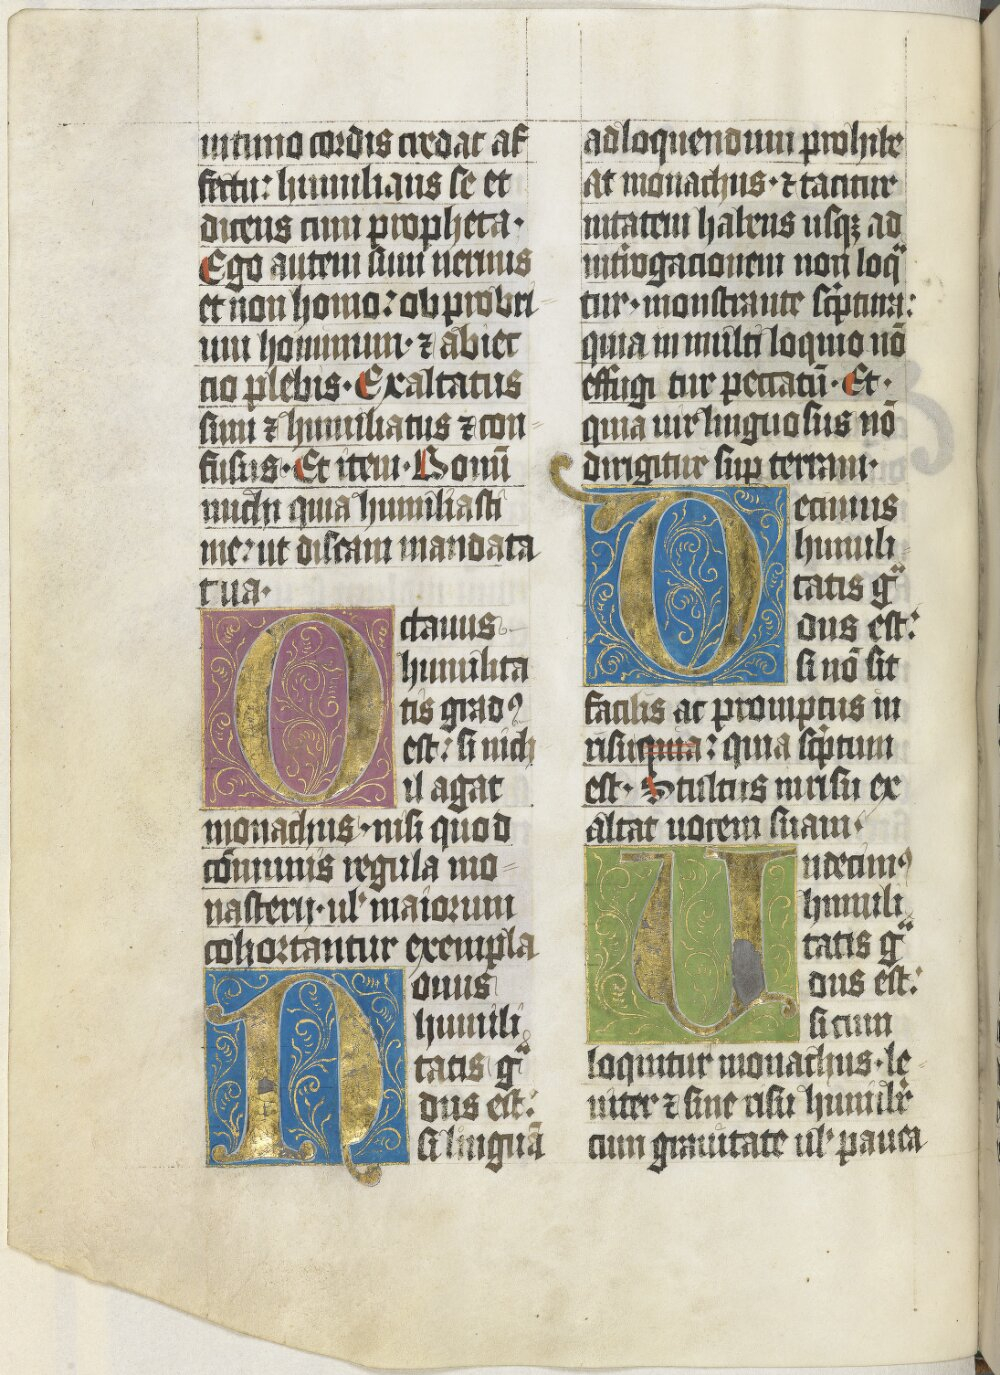 intimo cordis credat af
fectu: humilians se et
dicens cum propheta·
Ego autem sum uermis
et non homo: obprobri
um hominum· ⁊ abiec
tio plebis· Exaltatus
sum ⁊ humiliatus ⁊ con
fusus· Et item· Bonū
michi quia humiliasti
me: ut discam mandata
tua·
Octauus
humilita
tis gradꝰ
est: si nich
il agat
monachus· nisi quod
cōmunis regula mo
nasterij· ul' maiorum
cohortantur exempla
Nonus
humili
tatis gͣ
dus est:
si linguā
ad loquendum prohibe
at monachus· ⁊ taciтur
nitatem habens usqꝫ ad
int̄rogacionem non loqͣ
tur· monstrante sc̄ptura:
quia in multi loquio nō
effugi tur peccatū· Et·
quia uir linguosus nō
dirigitur sup terram·
Decimus
humili
tatis gͣ
dus est:
si nō sit
facilis ac promptus in
risu quia: quia sc̄ptum
est· Stultus in risu ex
altat uocem suam·
Undecimꝰ
humili
tatis gͣ
dus est:
si cum
loquitur monachus· le
niter ⁊ sine risu humilit̄
cum grauitate ul' pauca